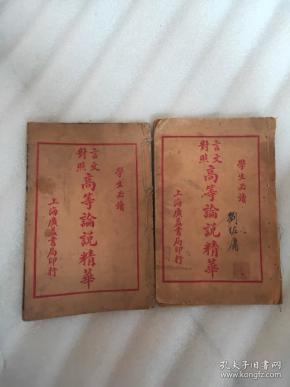 學生必讀
言文對照
高等論說精華
上海廣益書局印行
學生必讀
言文對照
高等論說精華
上海廣益書局印行
劉佐庸
孔夫子旧书网